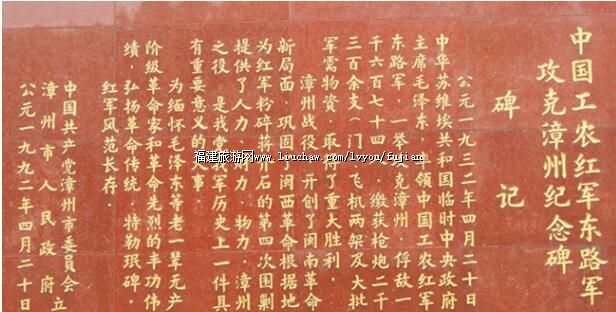 中国工农红军东路军
攻克漳州纪念碑
碑记
公元一九三二年四月二十日
中华苏维埃共和国临时中央政府
主席毛泽东领中国工农红军
东路军，一举克漳州，俘敌一
千六百七十四，缴获枪炮二千
三百余支（门飞机两架及大批
军需物资，取得了重大胜利。
漳州战役，开创了闽南革命
新局面，巩固闽西革命根据地
为红军粉碎蒋介石的第四次围剿
提供了人力、财力、物力。漳州
之役，是我党我军历史上一件具
有重要意义的大事。
为缅怀毛泽东等老一辈无产
阶级革命家和革命先烈的丰功伟
绩，弘扬革命传统，特勒珉碑，
红军风范长存。
中国共产党漳州市委员会立
漳州市人民政府
公元一九九二年四月二十日
福建旅游网www.liuchaw.com/lvyou/fujian